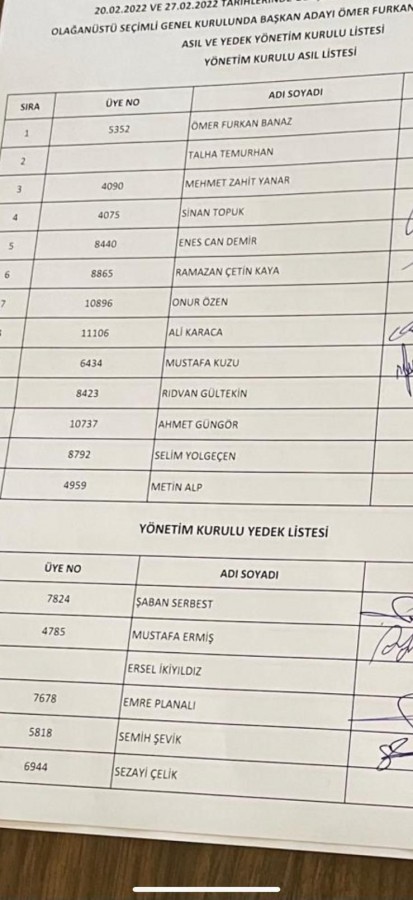 20.02.2022 VE 27.02.2022
OLAĞANÜSTÜ SEÇİMLİ GENEL KURULUNDA BAŞKAN ADAYI ÖMER FURKAN
ASIL VE YEDEK YÖNETİM KURULU LİSTESİ
YÖNETİM KURULU ASIL LİSTESİ
SIRA ÜYE NO ADI SOYADI
1 5352 ÖMER FURKAN BANAZ
2 TALHA TEMURHAN
3 4090 MEHMET ZAHİT YANAR
4 4075 SİNAN TOPUK
5 8440 ENES CAN DEMİR
6 8865 RAMAZAN ÇETİN KAYA
7 10896 ONUR ÖZEN
11106 ALİ KARACA
6434 MUSTAFA KUZU
8423 RIDVAN GÜLTEKİN
10737 AHMET GÜNGÖR
8792 SELİM YOLGEÇEN
4959 METİN ALP
YÖNETİM KURULU YEDEK LİSTESİ
ÜYE NO ADI SOYADI
7824 ŞABAN SERBEST
4785 MUSTAFA ERMİŞ
ERSEL İKİYILDIZ
7678 EMRE PLANALI
5818 SEMİH ŞEVİK
6944 SEZAYİ ÇELİK